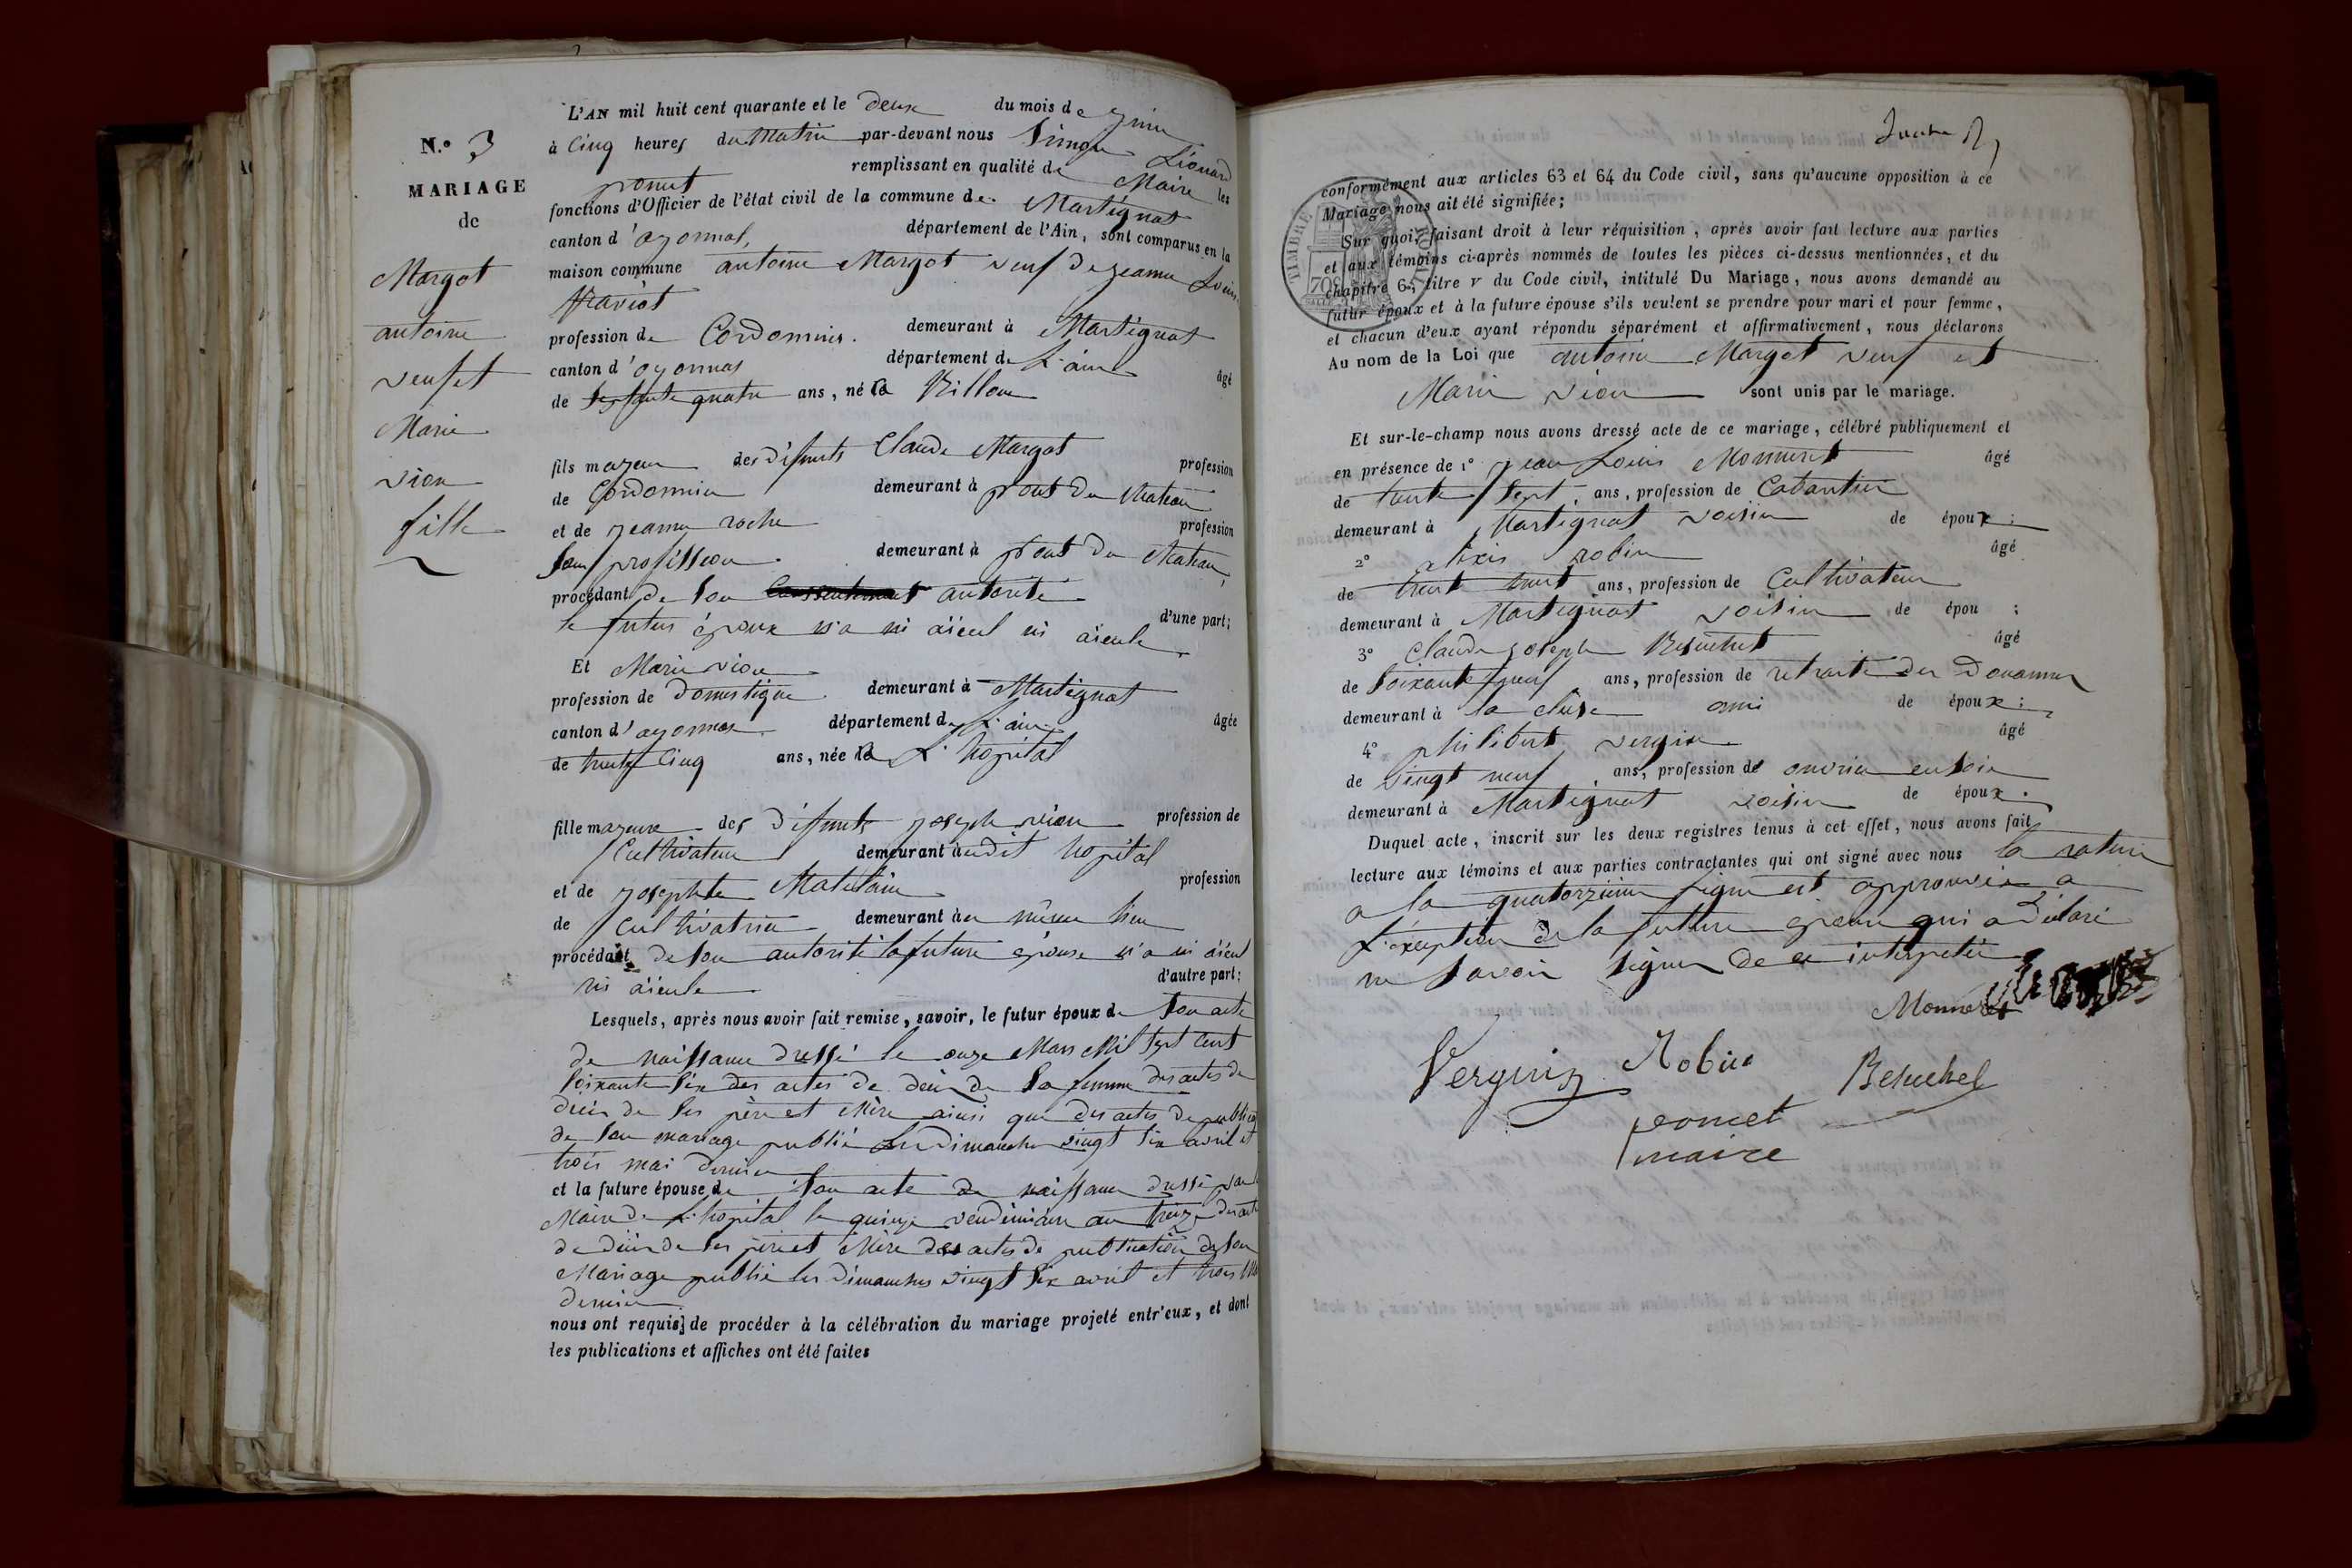 N.º 3
MARIAGE
de
Margot
antoine
veuf et
Marie
vion
fille
L'AN mil huit cent quarante et le deux du mois de juin
à Cinq heures du Matin par-devant nous Simon Léonard
poncet remplissant en qualité de Maire les
fonctions d'Officier de l'état civil de la commune de Martignat
canton d'oyonnas, département de l'Ain, sont comparus en la
maison commune antoine Margot veuf de jeanne Louise
profession de Cordonnier. demeurant à Martignat
canton d'oyonnas département de L'ain âgé
de septante quatre ans, né à Billon
fils majeur des défunts Claude Margot profession
de Cordonnier demeurant à pont du chateau
et de jeanne roche profession
sans profession demeurant à pont du chateau,
procédant de son consentement autorité
le futur époux n'a ni aïeul ni aïeule d'une part;
Et Marie vion
profession de Domestique demeurant à Martignat
canton d'oyonnas département de L'ain âgée
de trente Cinq ans, née à L'hopital
fille majeure des défunts joseph vion profession de
Cultivateur demeurant audit hopital
et de josephte profession
de Cultivatrice demeurant au même lieu
procédant de son autorité la future épouse n'a ni aïeul
ni aïeule d'autre part:
Lesquels, après nous avoir fait remise, savoir, le futur époux de son acte
de naissance dressé le onze Mars Mil sept Cent
soixante six des actes de décès de sa femme des actes de
décès de ses père et Mère ainsi que des actes de publication
de son mariage publié les dimanches vingt six avril et
trois mai dernier
et la future épouse de son acte de naissance dressé par
Maire de L'hopital le quinze vendémiaire an treize des actes
de décès de ses père et Mère des actes de publication de son
Mariage publié les dimanches vingt six avril et trois Mai
dernier
nous ont requis de procéder à la célébration du mariage projeté entr'eux, et dont
les publications et affiches ont été faites
conformément aux articles 63 et 64 du Code civil, sans qu'aucune opposition à ce
Mariage nous ait été signifiée;
Sur quoi, faisant droit à leur réquisition, après avoir fait lecture aux parties
et aux témoins ci-après nommés de toutes les pièces ci-dessus mentionnées, et du
chapitre 6, titre v du Code civil, intitulé Du Mariage, nous avons demandé au
futur époux et à la future épouse s'ils veulent se prendre pour mari et pour femme,
et chacun d'eux ayant répondu séparément et affirmativement, nous déclarons
Au nom de la Loi que antoine Margot veuf et
Marie vion sont unis par le mariage.
Et sur-le-champ nous avons dressé acte de ce mariage, célébré publiquement et
en présence de 1º jean Louis Monneret âgé
de trente sept ans, profession de Cabartier
demeurant à Martignat voisin de époux;
2º alexis robin âgé
de trent huit ans, profession de Cultivateur
demeurant à Martignat voisin de épou ;
3º Claude joseph Béjuchet âgé
de soixante neuf ans, profession de retraité des Douannes
demeurant à la cluse ami de époux;
4º philibert vergin âgé
de vingt neuf ans, profession de ouvrier en soie
demeurant à Martignat voisin de époux.
Duquel acte, inscrit sur les deux registres tenus à cet effet, nous avons fait
lecture aux témoins et aux parties contractantes qui ont signé avec nous la rature
a la quatorzieme ligne est approuvée a
L'exeption de la future épouse qui a déclaré
ne savoir signer de ce interpelée
Monneret
Robin
Bejuchet
poncet
maire
TIMBRE ROYAL
70c